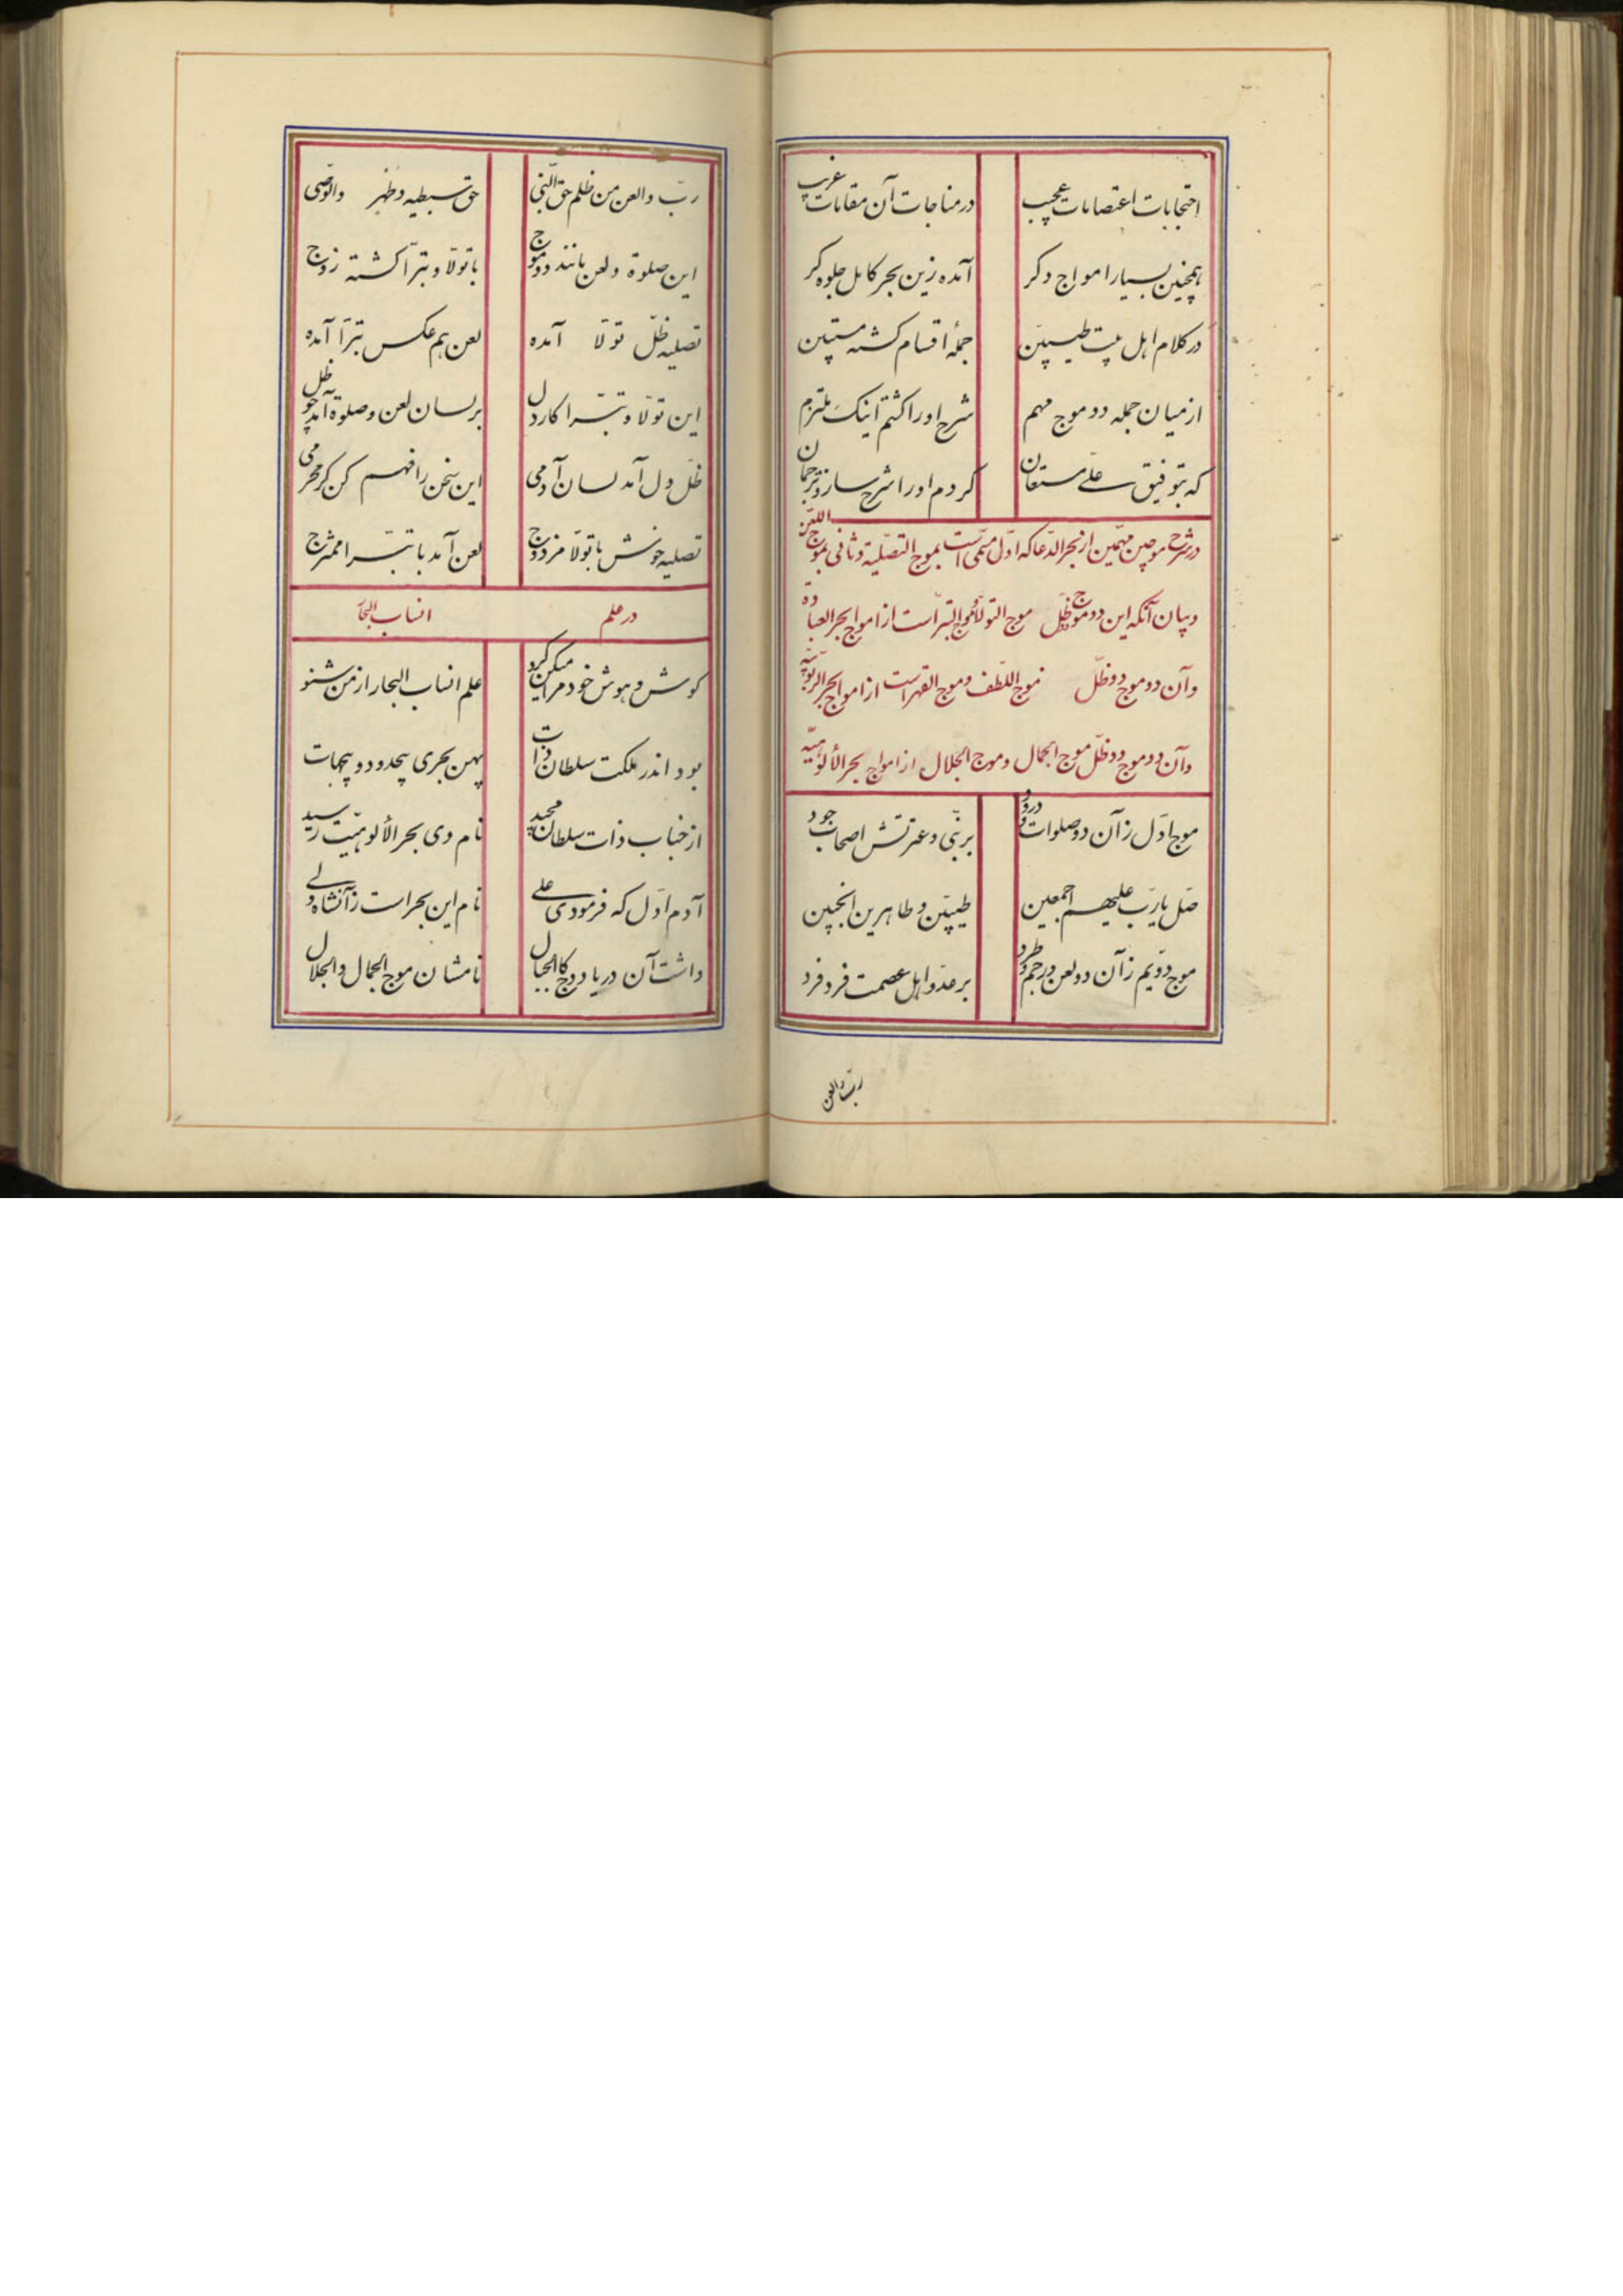 احتجابات اعتصامات عجیب
در مناجات آن مقامات غریب
همچنین بسیار امواج دکر
آمده زین بحر کامل جلوه کر
در کلام اهل بیت طیبین
جملهٔ اقسام کشته مستبین
از میان جمله دو موج مهم
شرح او را کشتم اینک ملتزم
که بتوفیق علی مستعان
کردم او را شرح ساز و ترجمان
در شرح موجین مهمین از بحر الدعا که اول مسمی است بموج التصلیة و ثانی بموج اللعن
و بیان آنکه این دو موج ظل موج التولا و موج التبراست از امواج بحر العباده
و آن دو موج دو ظل موج اللطف و موج القهر است از امواج بحر الربوبیه
و آن دو موج دو ظل موج الجمال و موج الجلال از امواج بحر الألوهیة
موج اول زآن دو صلوات و درود
بر نبی و عترتش اصحاب جود
صل یا رب علیهم اجمعین
طیبین و طاهرین انجبین
موج دویم زآن دو لعن و رجم و طرد
بر عدو اهل عصمت فرد فرد
رب والعن
رب والعن من ظلم حق النبی
حق سبطیه و طهر والوصی
این صلوة و لعن مانند دو موج
با تولا و تبرا کشته زوج
تصلیه ظل تولا آمده
لعن هم عکس تبرا آمده
این تولا و تبرا کار دل
بر لسان لعن و صلوة آمد چو ظل
ظل دل آمد لسان آدمی
این سخن را فهم کن کر محرمی
تصلیه خوش با تولا مزدوج
لعن آمد با تبرا ممتزج
در علم انساب البحار
کوش و هوش خود مرا میکن کرو
علم انساب البحار از من شنو
بود اندر ملکت سلطان ذات
پهن بحری بیحدود و بیجهات
از جناب ذات سلطان مجید
نام وی بحر الألوهیت رسید
آدم اول که فرمودی علی
نام این بحر است زآنشاه ولی
داشت آن دریا دو موج کالجبال
نامشان موج الجمال و الجلال